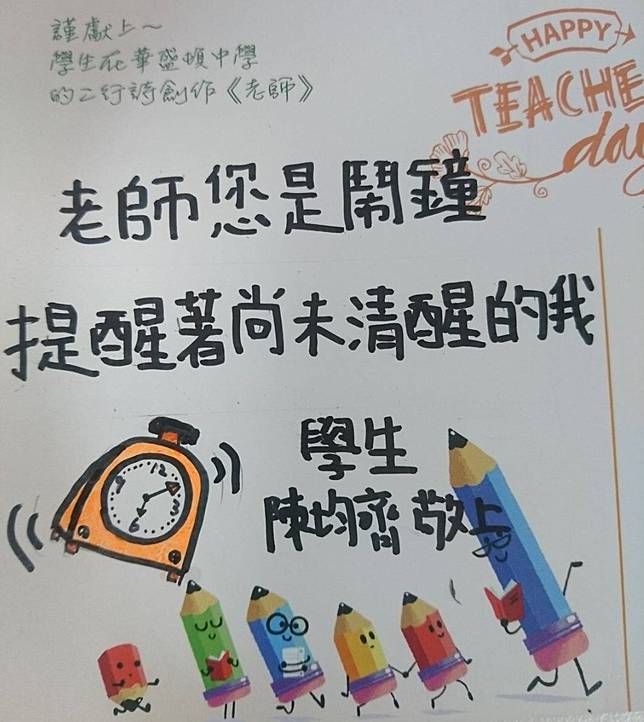 謹獻上～
學生在華盛頓中學
的二行詩創作《老師》
HAPPY
TEACHE
day
老師您是鬧鐘
提醒著尚未清醒的我
12
3
6
9
學生
陳均齊 敬上